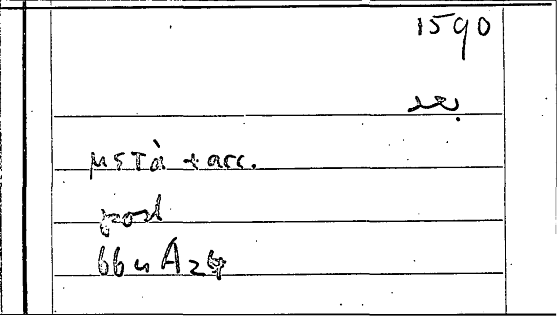 1590
μετὰ + acc.
post
66u A24